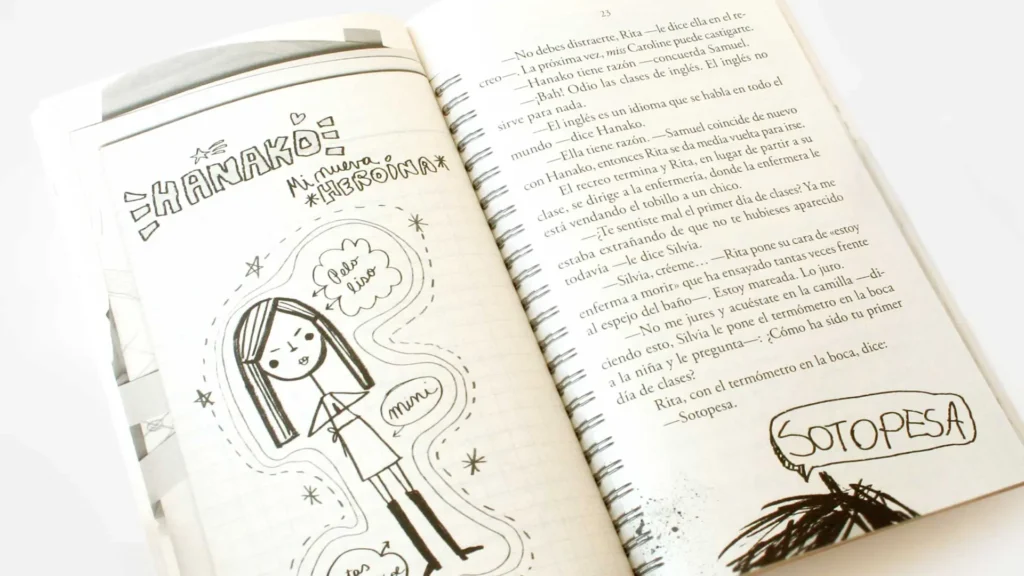 HANAKO
Mi nueva
*HEROÍNA*
Pelo
liso
mini
23
—No debes distraerte, Rita —le dice ella en el re-
creo—. La próxima vez, miss Caroline puede castigarte.
—Hanako tiene razón —concuerda Samuel.
—¡Bah! Odio las clases de inglés. El inglés no
sirve para nada.
—El inglés es un idioma que se habla en todo el
mundo —dice Hanako.
—Ella tiene razón. —Samuel coincide de nuevo
con Hanako, entonces Rita se da media vuelta para irse.
El recreo termina y Rita, en lugar de partir a su
clase, se dirige a la enfermería, donde la enfermera le
está vendando el tobillo a un chico.
—¿Te sentiste mal el primer día de clase? Ya me
estaba extrañando de que no te hubieses aparecido
todavía —le dice Silvia.
—Silvia, créeme... —Rita pone su cara de «estoy
enferma a morir» que ha ensayado tantas veces frente
al espejo del baño—. Estoy mareada. Lo juro.
—No me jures y acuéstate en la camilla —di-
ciendo esto, Silvia le pone el termómetro en la boca
a la niña y le pregunta—: ¿Cómo ha sido tu primer
día de clases?
Rita, con el termómetro en la boca, dice:
—Sotopesa.
SOTOPESA